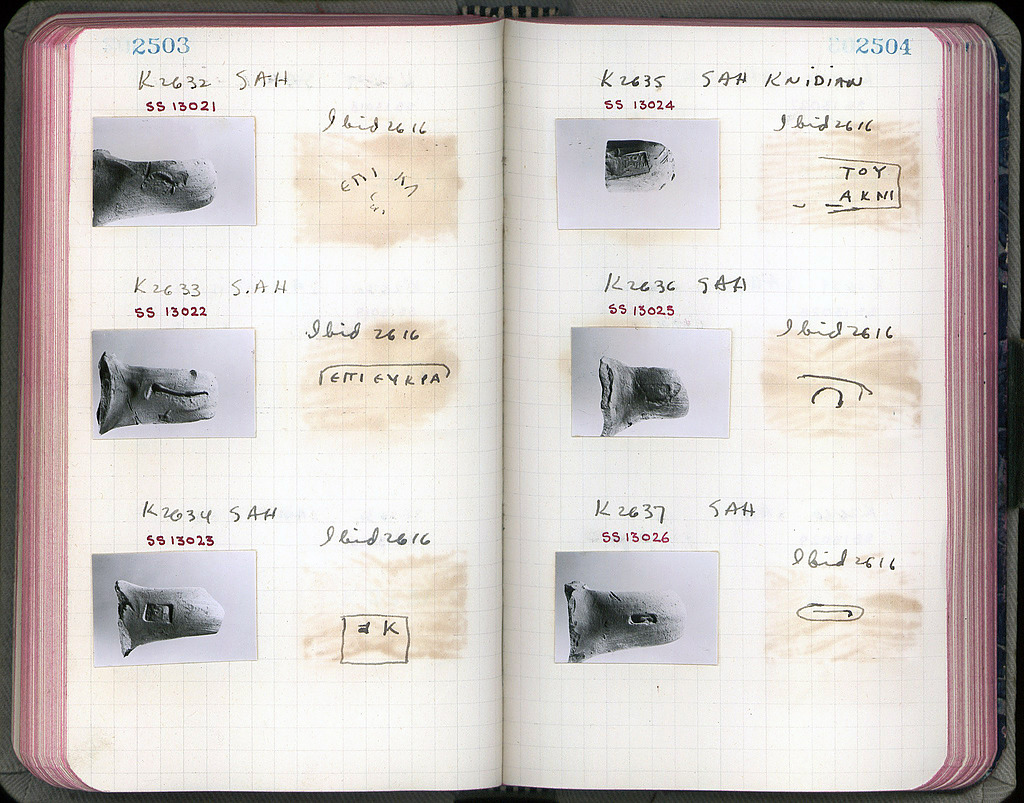 2503
K 2632 SAH
SS 13021
Ibid 2616
ΕΠΙ
K 2633 S.AH
SS 13022
Ibid 2616
ΕΠΙΕΥΚΡΑ
K 2634 SAH
SS 13023
Ibid 2616
K
2504
K 2635 SAH KNIDIAN
SS 13024
Ibid 2616
ΤΟΥ
ΑΚΝΙ
K 2636 SAH
SS 13025
Ibid 2616
K 2637 SAH
SS 13026
Ibid 2616